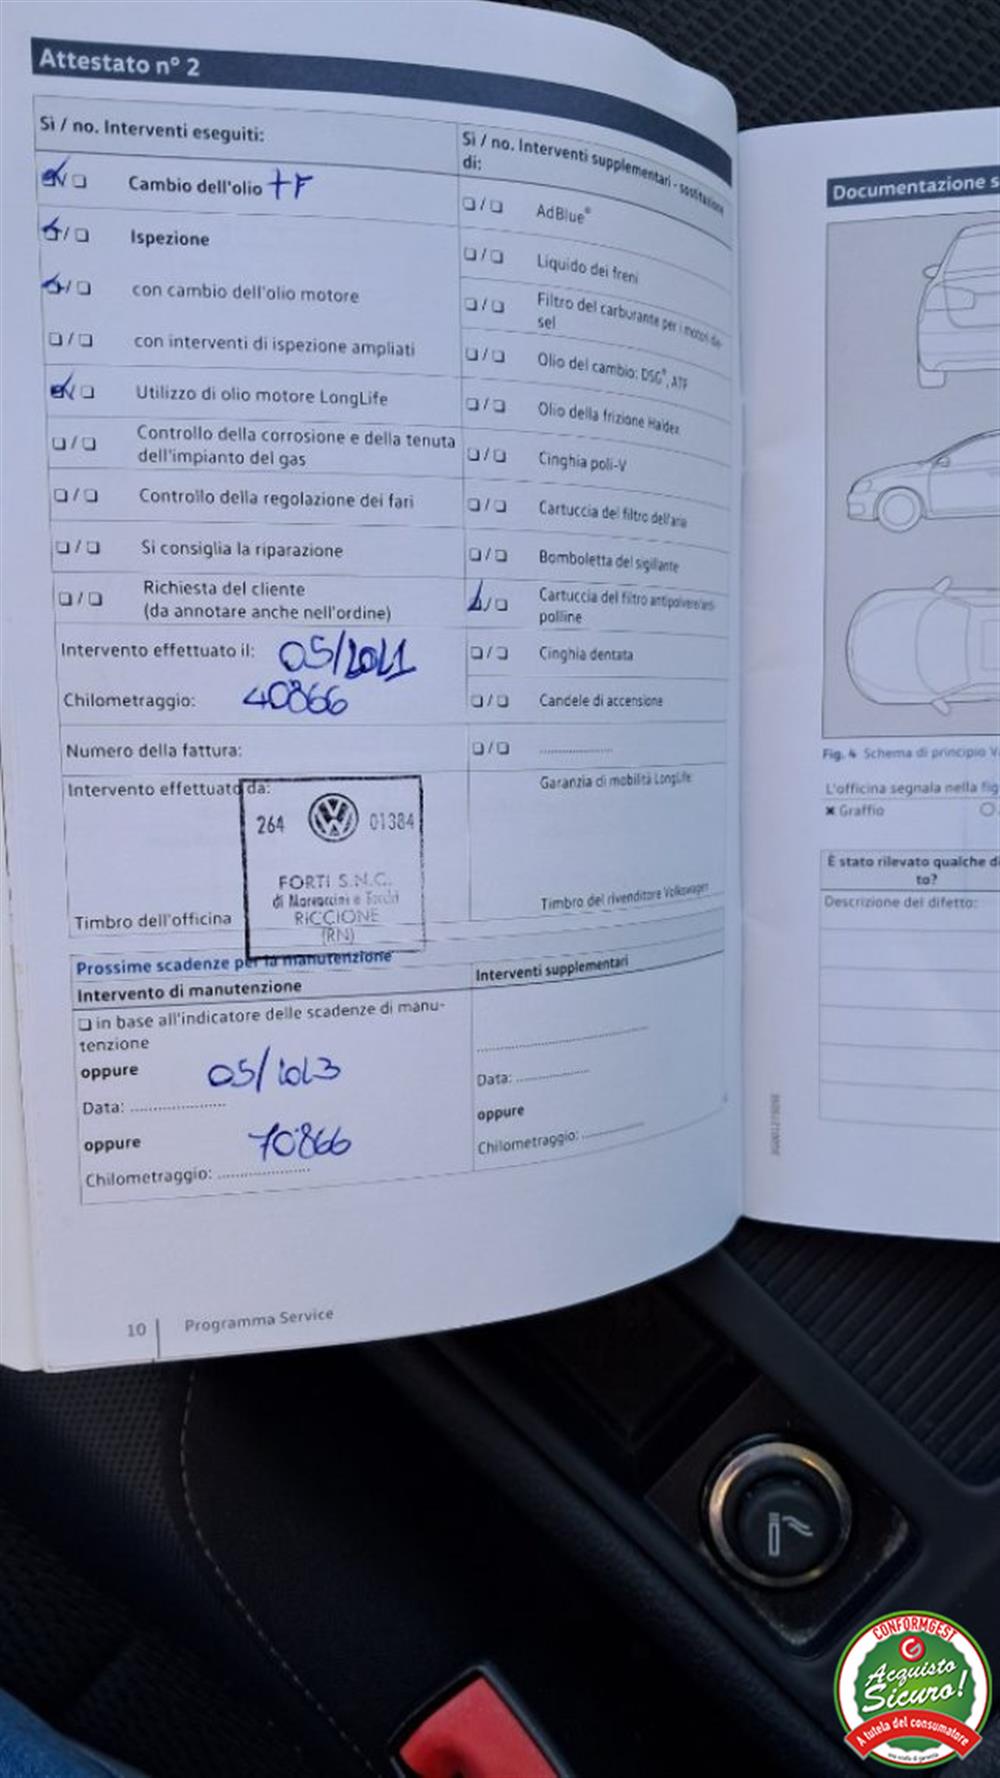 Attestato n° 2
Sì / no. Interventi eseguiti:
Cambio dell'olio +F
Ispezione
con cambio dell'olio motore
con interventi di ispezione ampliati
Utilizzo di olio motore LongLife
Controllo della corrosione e della tenuta
dell'impianto del gas
Controllo della regolazione dei fari
Si consiglia la riparazione
Richiesta del cliente
(da annotare anche nell'ordine)
Intervento effettuato il: 05/2021
Chilometraggio: 40866
Numero della fattura:
Intervento effettuato da:
264 01384
FORTI S.N.C.
di
RICCIONE
(RN)
Timbro dell'officina
Sì / no. Interventi supplementari - sostituzione
di:
AdBlue®
Liquido dei freni
Filtro del carburante per i motori die-
sel
Olio del cambio: DSG®, ATF
Olio della frizione Haldex
Cinghia poli-V
Cartuccia del filtro dell'aria
Bomboletta del sigillante
Cartuccia del filtro antipolvere/anti-
polline
Cinghia dentata
Candele di accensione
Garanzia di mobilità LongLife
Timbro del rivenditore Volkswagen
Prossime scadenze per la manutenzione
Intervento di manutenzione
in base all'indicatore delle scadenze di manu-
tenzione
oppure
05/2023
Data:
oppure
70866
Chilometraggio:
Interventi supplementari
Data:
oppure
Chilometraggio:
10 Programma Service
Documentazione s
Fig. 4 Schema di principio V
L'officina segnala nella fig
Graffio
È stato rilevato qualche di
to?
Descrizione del difetto:
CONFORMGEST
Acquisto
Sicuro!
A tutela del consumatore